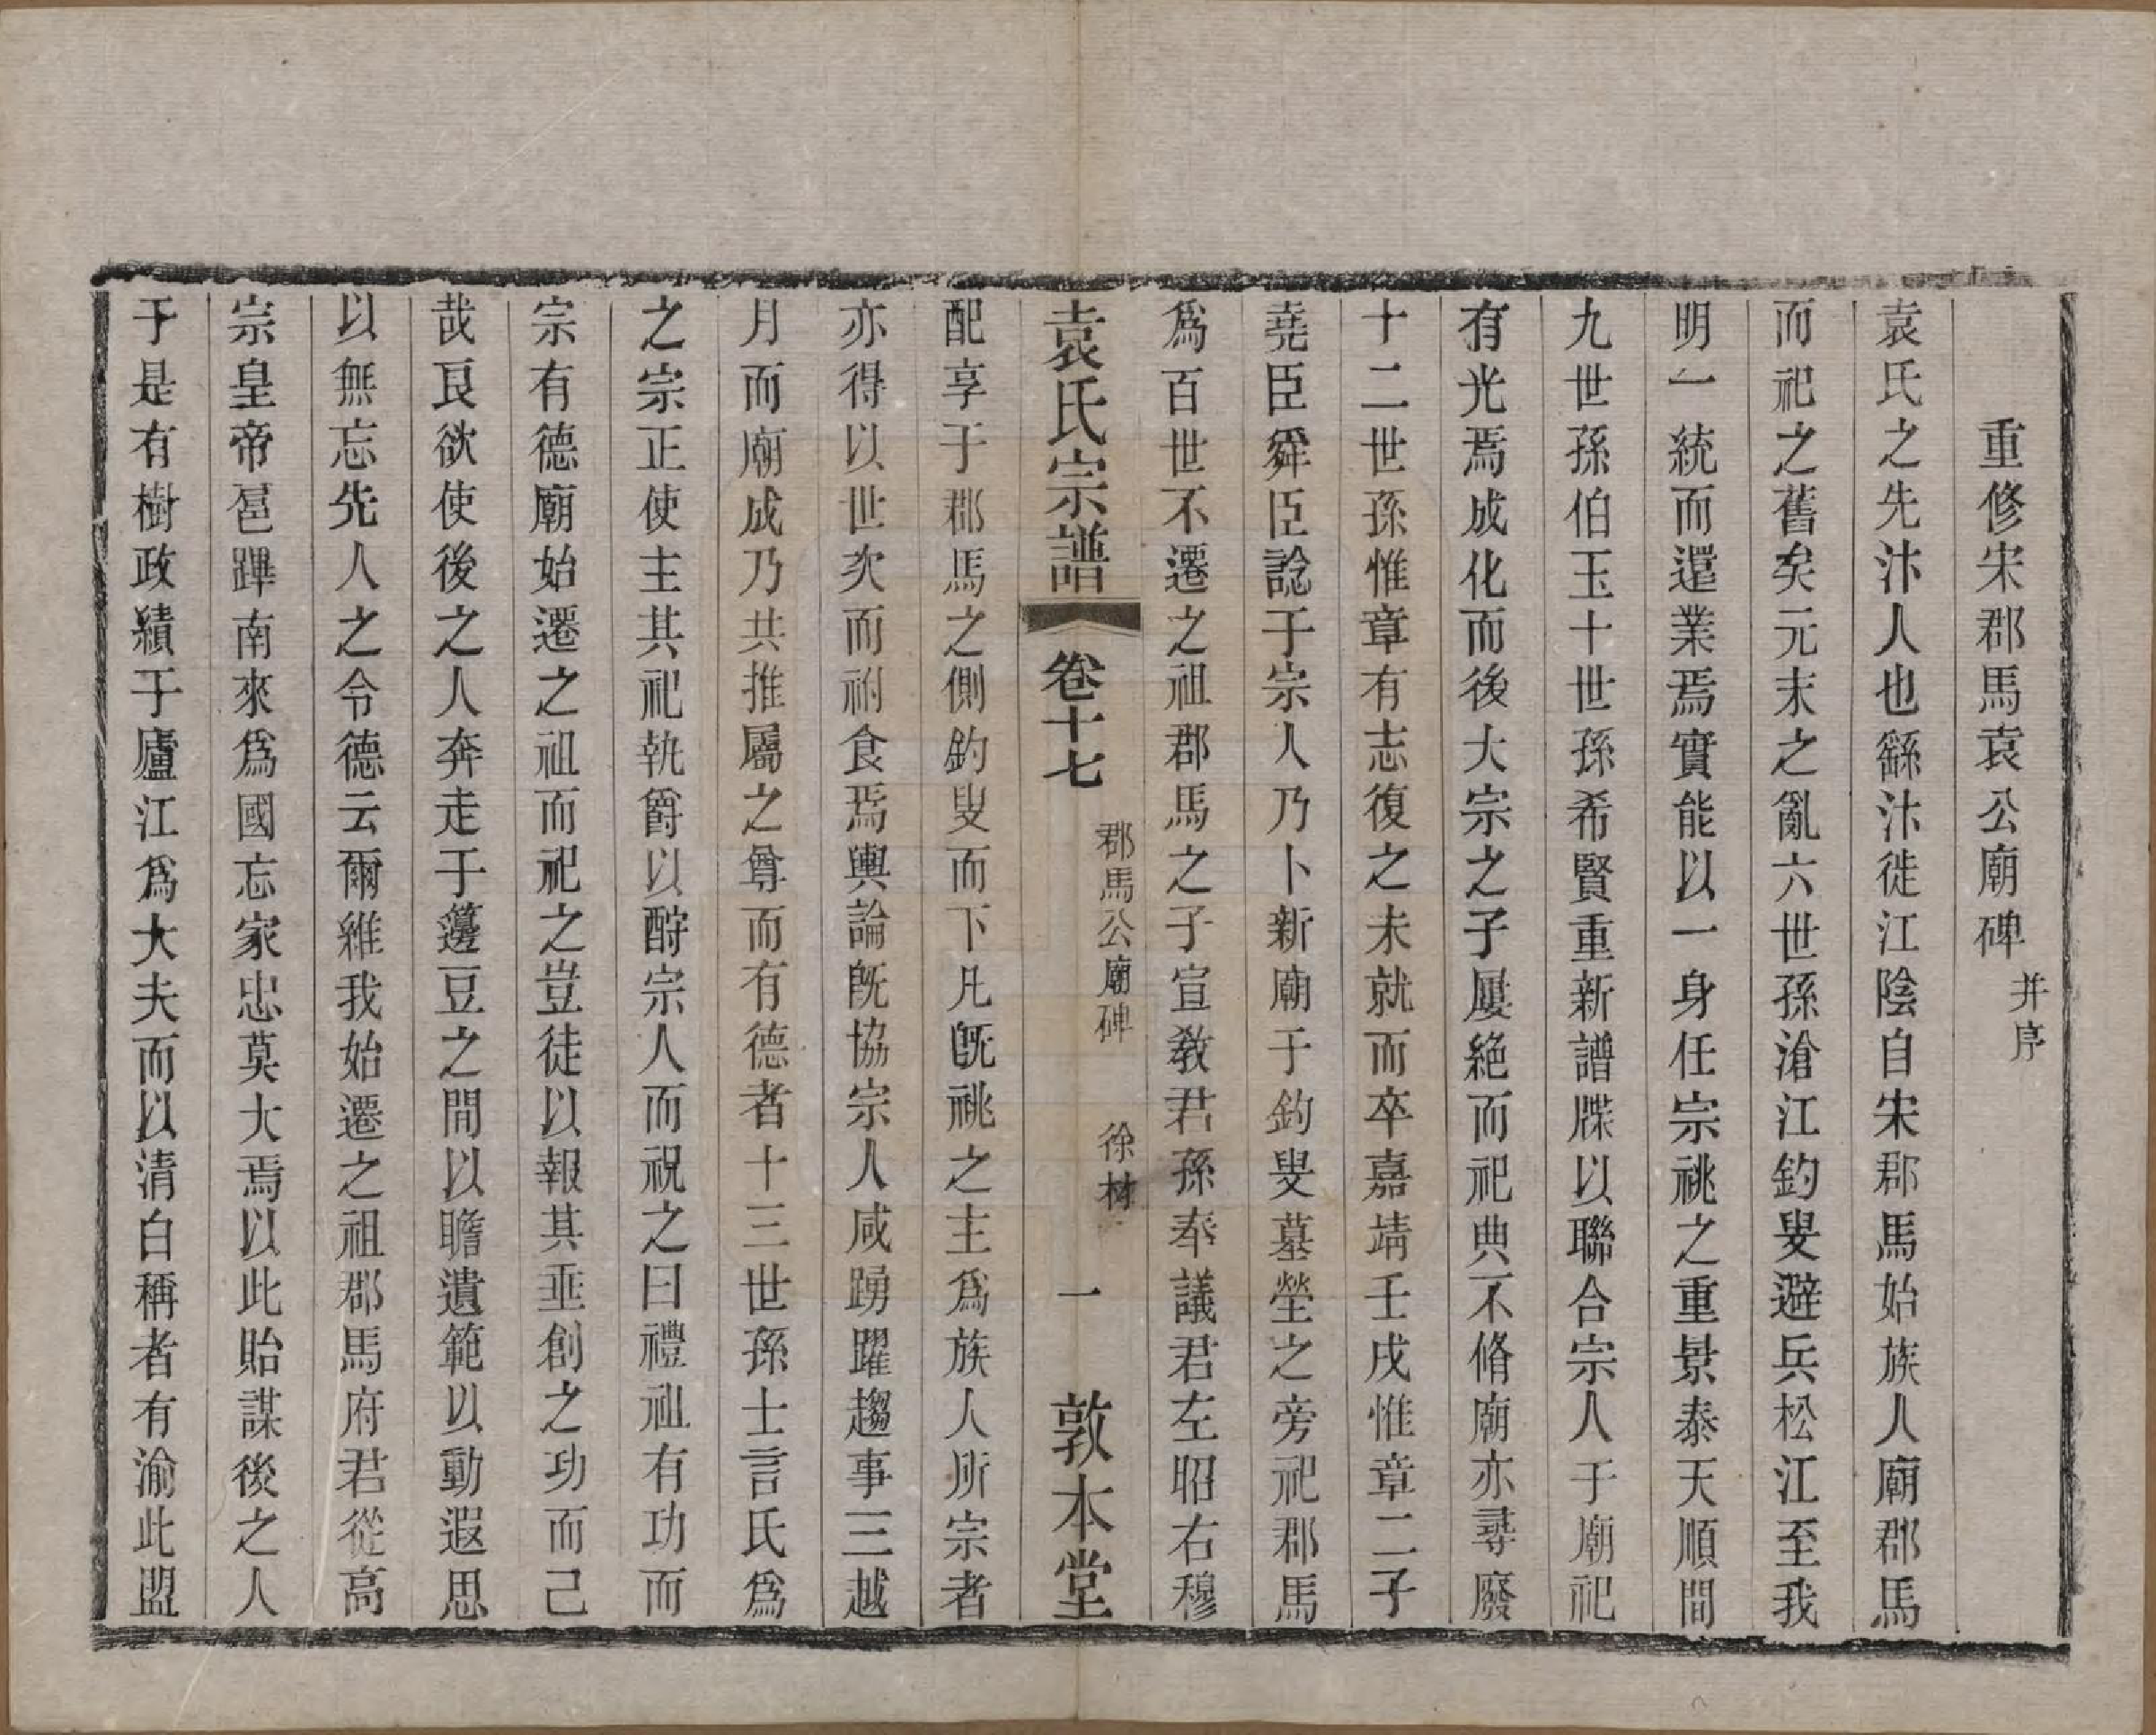 重修宋郡馬袁公廟碑并序
袁氏之先汴人也繇汴徙江陰自宋郡馬始族人廟郡馬
而祀之舊矣元末之亂六世孫滄江釣叟避兵松江至我
明一統而還業焉實能以一身任宗祧之重景泰天順間
九世孫伯玉十世孫希賢重新譜牒以聯合宗人于廟祀
有光焉成化而後大宗之子屢絕而祀典不脩廟亦尋廢
十二世孫惟章有志復之未就而卒嘉靖壬戌惟章二子
堯臣舜臣諗于宗人乃卜新廟于釣叟墓塋之旁祀郡馬
爲百世不遷之祖郡馬之子宣教君孫奉議君左昭右穆
袁氏宗譜 卷十七 郡馬公廟碑 徐材 一 敦本堂
配享于郡馬之側釣叟而下凡旣祧之主爲族人所宗者
亦得以世次而祔食焉輿論旣協宗人咸踴躍趨事三越
月而廟成乃共推屬之尊而有德者十三世孫士言氏爲
之宗正使主其祀執爵以酹宗人而祝之曰禮祖有功而
宗有德廟始遷之祖而祀之豈徒以報其垂創之功而已
哉良欲使後之人奔走于籩豆之間以瞻遺範以動遐思
以無忘先人之令德云爾維我始遷之祖郡馬府君從高
宗皇帝扈蹕南來爲國忘家忠莫大焉以此貽謀後之人
于是有樹政績于廬江爲大夫而以清白稱者有渝此盟